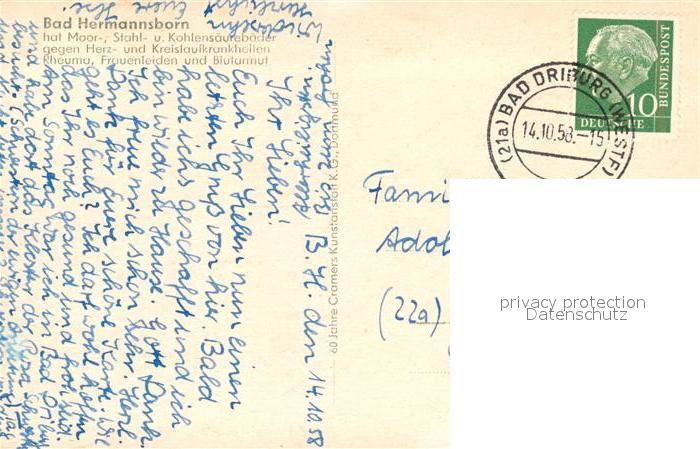 Bad Hermannsborn
hat Moor-, Stahl- u. Kohlensäurebäder
gegen Herz- und Kreislaufkrankheiten
Rheuma, Frauenleiden und Blutarmut
B. H. den 14.10.58
Ihr Lieben!
Euch Ihr Lieben nun einen
letzten Gruß von hier. Bald
habe ichs geschafft und ich
bin wieder zu Hause. Gott Dank.
Ich freue mich schon sehr. Herzl.
Dank für Eure schöne Karte. Wie
geht es Euch? Ich darf wohl hoffen
das Ihr noch gesund und froh seid.
Am Sonntag war ich in Bad Driburg
und habe dort das Kloster der
besucht.
Eure Ilse.
60 Jahre Cramers Kunstanstalt K.G., Dortmund
(21a) BAD DRIBURG (WESTF)
14.10.58.-15
10
DEUTSCHE
BUNDESPOST
Fami
Adol
(22a)
privacy protection
Datenschutz